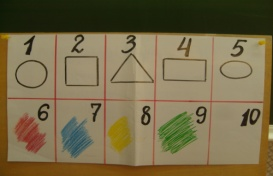 1 2 3 4 5
6 7 8 9 10